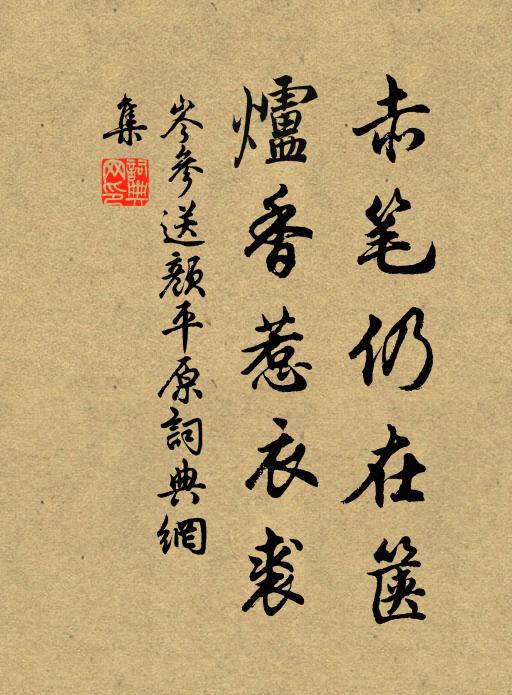 赤笔仍在箧
爐香惹衣裘
岑參送顏平原詞典網
集
詞典网印